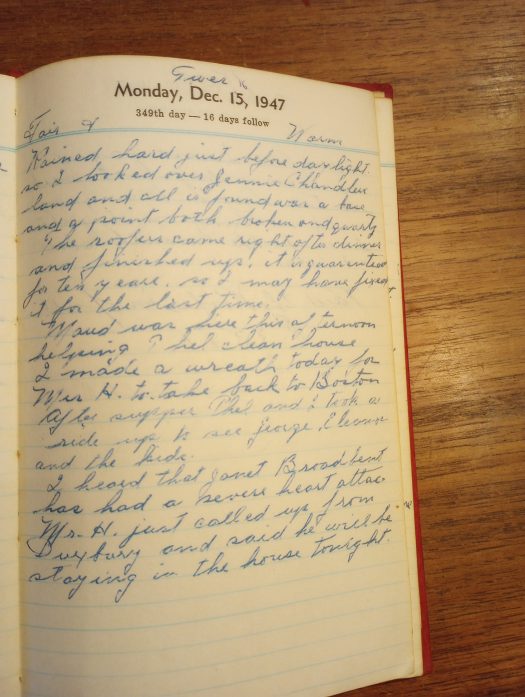 Tues
Monday, Dec. 15, 1947
349th day — 16 days follow
Fair & Warm
Rained hard just before daylight
so I looked over Jennie Chandler
land and all is found was a base
and a point both broken and quartz
The roofers came right after dinner
and finished up. it is guaranteed
for ten years. so I may have fixed
it for the last time.
Maud was here this afternoon
helping Thel clean house
I made a wreath today for
Mrs H. to take back to Boston
After supper Thel and I took a
ride up to see George, Eleanor
and the kids.
I heard that Janet Broadbent
has had a severe heart attac
Mr. H. just called up from
Duxbury and said he will be
staying in the house tonight.